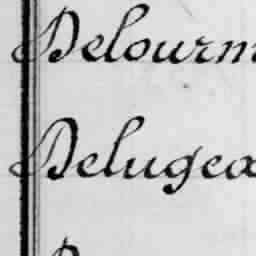 Delourm
Delugea